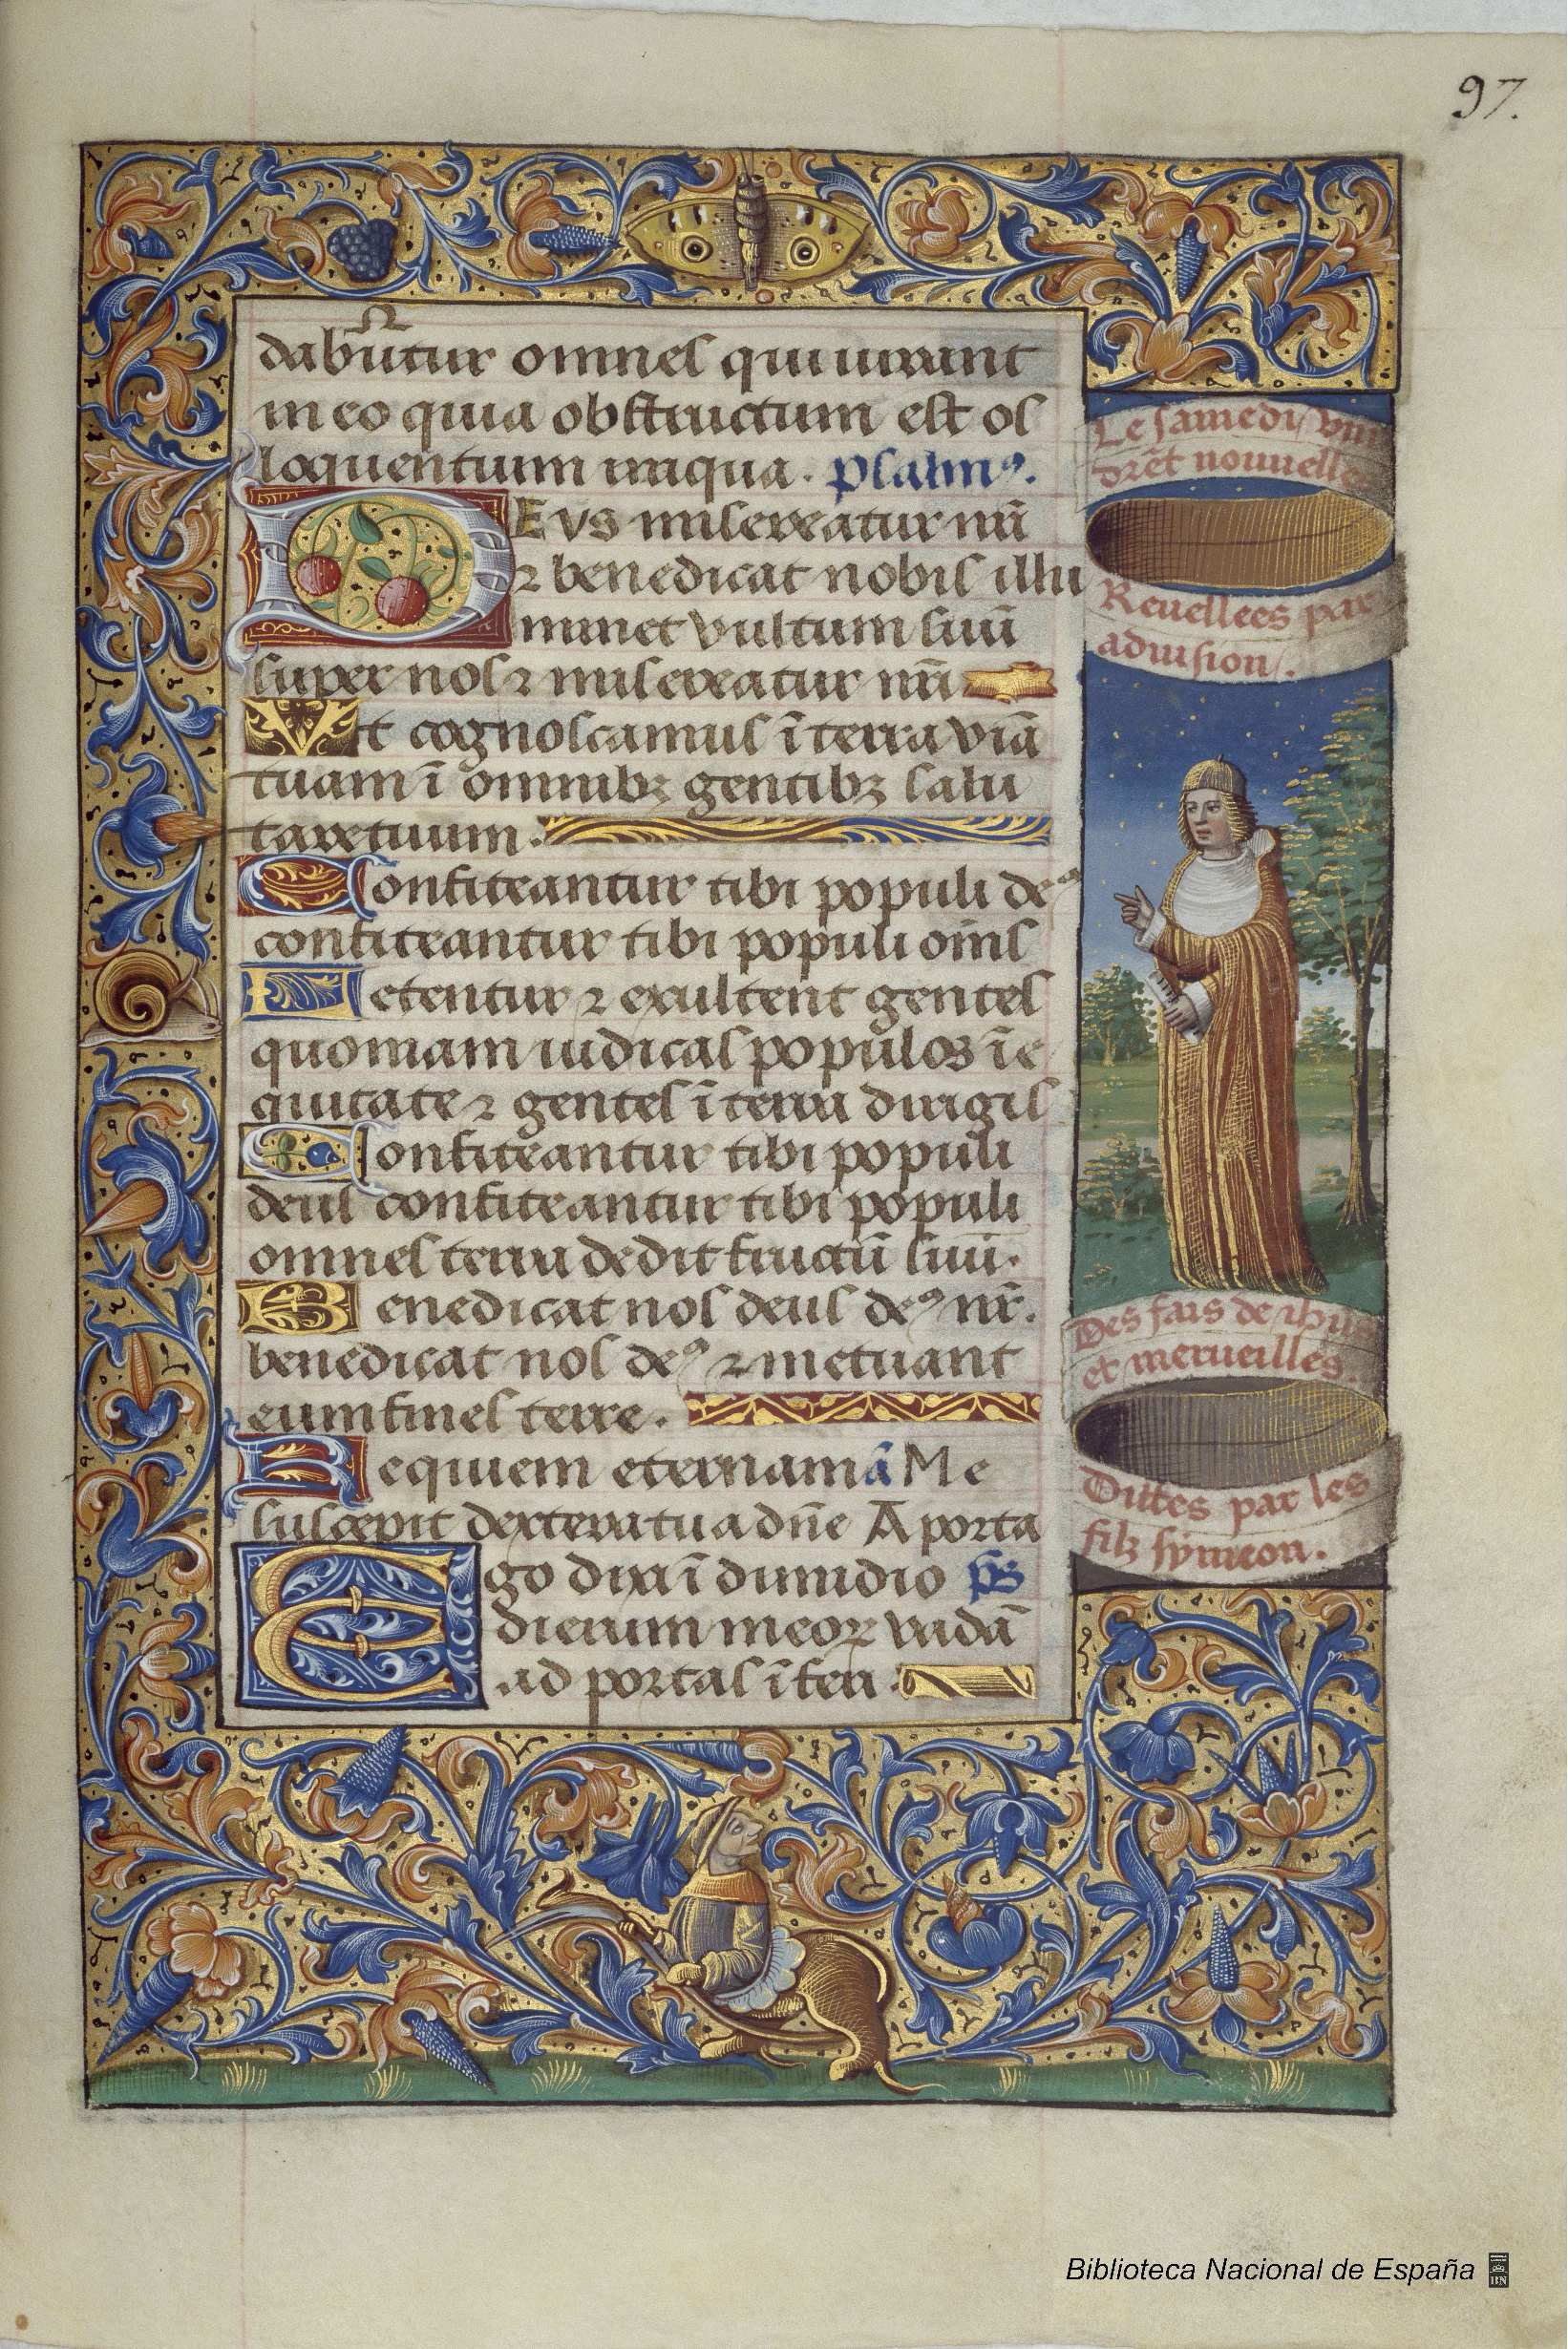 97.
dabũtur omnes qui iurant
in eo quia obstructum est os
loquentium iniqua. psalmꝰ.
DEVS misereatur nr̃i
⁊ benedicat nobis illu
minet vultum suũ
super nos ⁊ misereatur nr̃i
Vt cognoscamus ĩ terra viã
tuam ĩ omnibꝫ gentibꝫ salu
tare tuum.
Confiteantur tibi populi deꝰ
confiteantur tibi populi om̃s
Letentur ⁊ exultent gentes
quoniam iudicas populoꝝ ĩ e
quitate ⁊ gentes ĩ terra dirigis
Confiteantur tibi populi
deus confiteantur tibi populi
omnes terra dedit fructũ suũ.
Benedicat nos deus deꝰ nr̃.
benedicat nos deꝰ ⁊ metuant
eum fines terre.
Requiem eternam ã Me
suscepit dextera tua dñe A porta
Ego dixi ĩ dimidio p̃s
dierum meoꝝ vadã
ad portas ĩferi.
Le samedi vin
drẽt nouuelles
Reuellees par
aduision.
Des fais de ihũs
et merueilles.
Dittes par les
filz symeon.
Biblioteca Nacional de España
BN